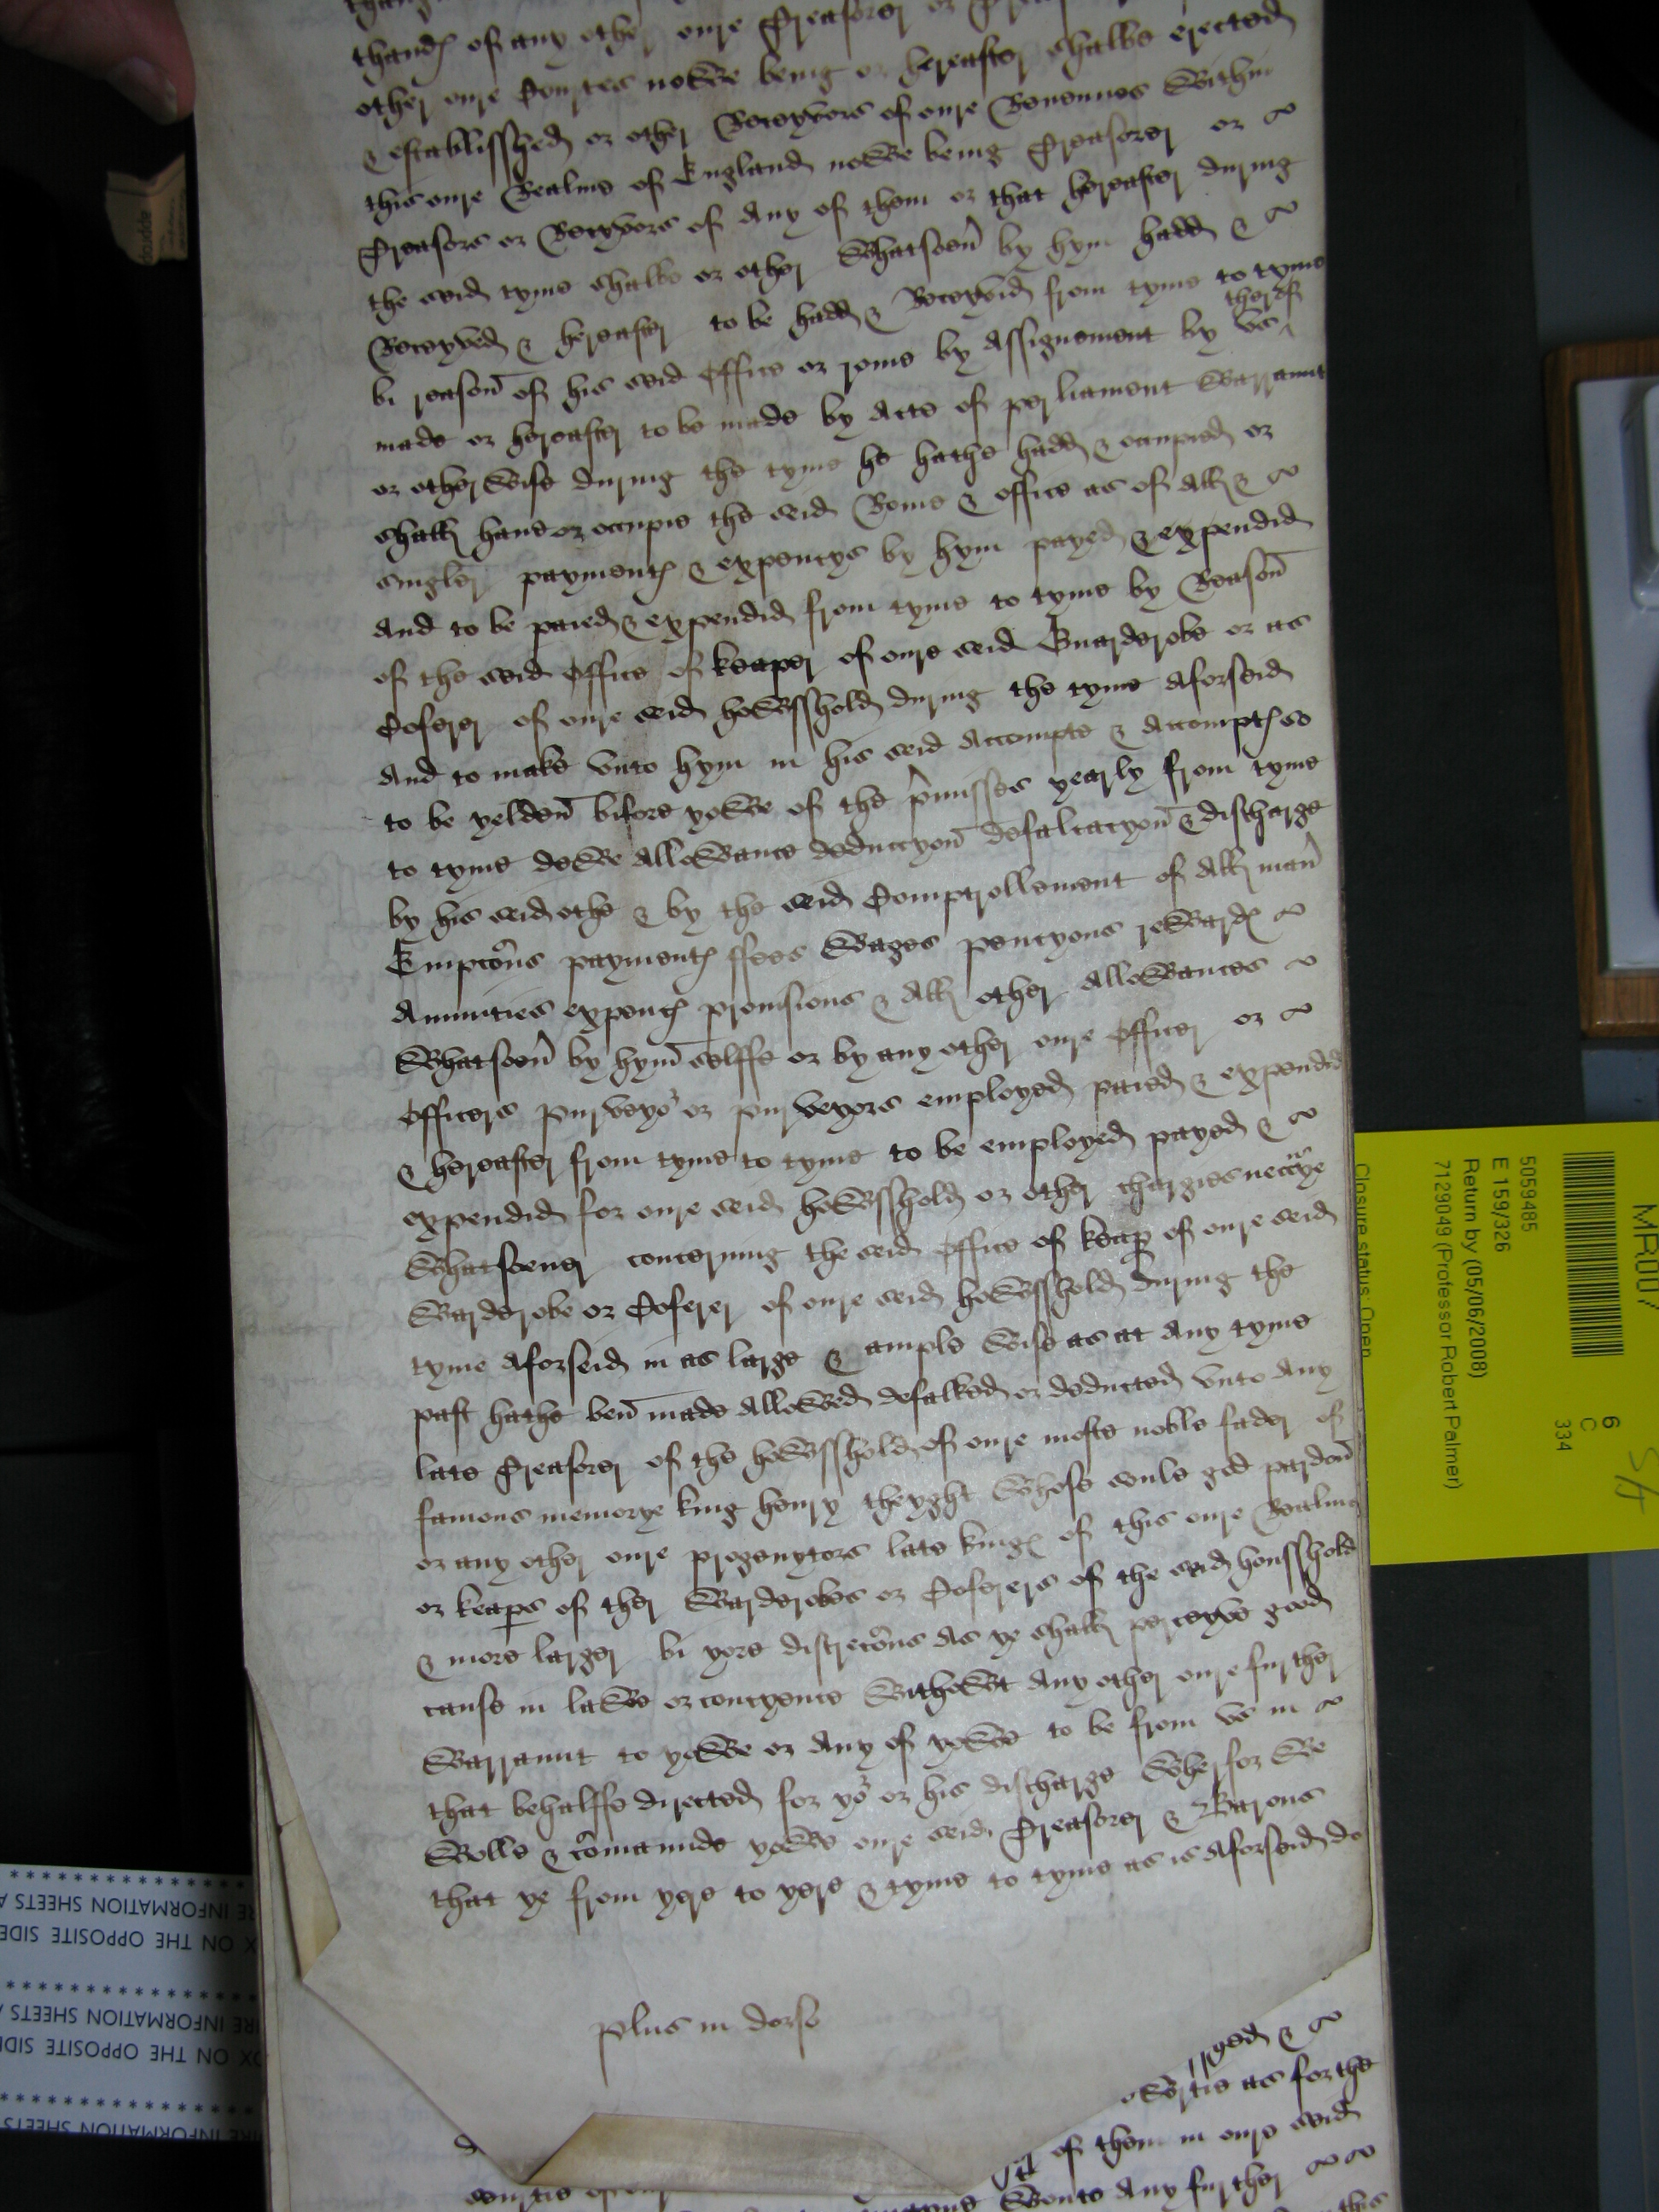 thandes of any other oure Treasorer or
other oure Courtes nowe being or hereafter shalbe erected
& establisshed or other Receyvors of oure Revenues within
this oure Realme of England nowe being Treasorer or
Treasors or Receyvors of any of them or that hereafter during
the seid tyme shalbe or other Whatsoeu' by hym hadd &
Receyved & hereafter to be hadd & Receyvid from tyme to tyme
bi reason of his seid office or rome by assignement by vs therof
made or hereafter to be made by acte of perliament Warraunt
or otherwise during the tyme he hathe hadd & occupied or
shall haue or occupie the seid Rome & office as of all &
singler payment(es) & expencys by hym payed & expendid
And to be paied & expendid from tyme to tyme by Reason
of the seid office of keaper of oure seid Guarderobe or as
Coferer of oure seid howsshold during the tyme aforseid
And to make vnto hym in his seid Accompte & Accompt(es) so
to be yelden bifore yowe of the p'misses yearly from tyme
to tyme dewe allowance deduccyon defalcacyon & discharge
by his seid othe & by the seid Comptrollement of all man'
Empcons payment(es) ffees Wages pencyons reward(es)
Annuities expenc(es) provisions & all other allowances
Whatsoeu' by hym selffe or by any other oure officer or
officers purveyo' or purveyors employed paied & expended
& hereafter from tyme to tyme to be employed payed &
expendid for oure seid howsshold or other chargies necc'ye
Whatsoeuer concerning the seid office of keap' of oure seid
Warderobe or Coferer of oure seid howsshold during the
tyme aforseid in as large & ample wise as at any tyme
past hathe ben made allowed defalked or deducted vnto any
late Treasorer of the howsshold of oure moste noble fader of
famous memorye king henry theyght whose soule god pardon
or any other oure progenytors late king(es) of this oure Realme
or keap's of ther Warderobes or Coferers of the seid housshold
& more larger bi yore discrecons as ye shall perceyve good
cause in lawe or concyence withowt any other oure further
Warraunt to yowe or any of yowe to be from vs in
that behalffe directed for yo' or his discharge Wherfor we
Wolle & comaunde yowe oure seid Treasorer & Barons
that ye from yere to yere & tyme to tyme as is aforseid do
plus in dorso
as for the
of them in oure seid
any further
MR007
5059485
E 159/326
Return by (05/06/2008)
7129049 (Professor Robert Palmer)
Closure status: Open
6
C
334
RE INFORMATION SHEETS A
X ON THE OPPOSITE SIDE
IRE INFORMATION SHEETS
OX ON THE OPPOSITE SIDE
INFORMATION SHEETS